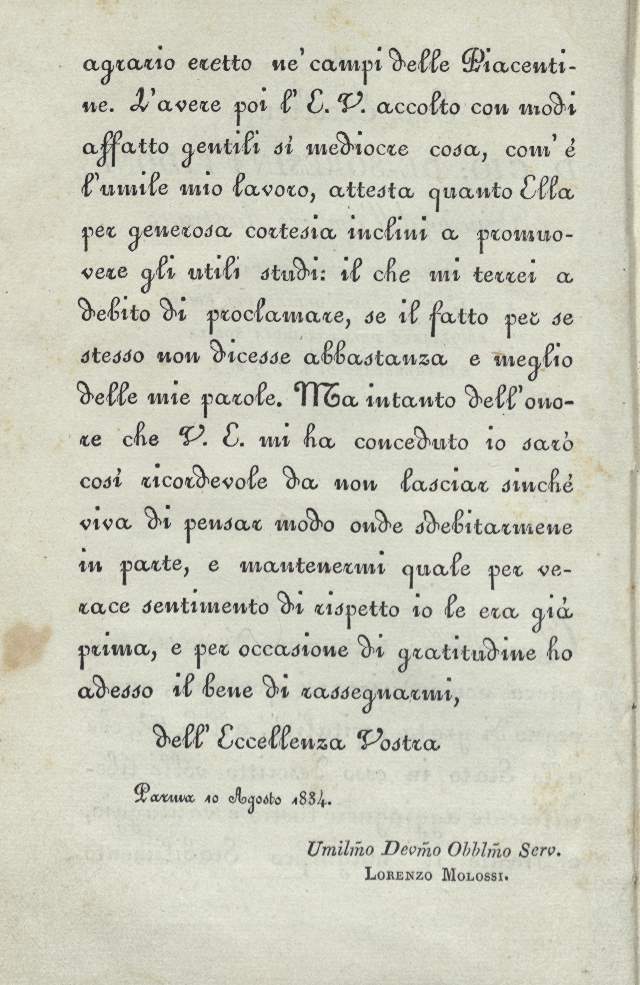 agrario eretto ne' campi delle Piacenti-
ne. L'avere poi l' E. V. accolto con modi
affatto gentili sí mediocre cosa, com' é
l'umile mio lavoro, attesta quanto Ella
per generosa cortesia inclini a promuo-
vere gli utili studi: il che mi terrei a
debito di proclamare, se il fatto per se
stesso non dicesse abbastanza e meglio
delle mie parole. Ma intanto dell'ono-
re che V. E. mi ha conceduto io sarò
cosí ricordevole da non lasciar sinché
viva di pensar modo onde sdebitarmene
in parte, e mantenermi quale per ve-
race sentimento di rispetto io le era già
prima, e per occasione di gratitudine ho
adesso il bene di rassegnarmi,
dell' Eccellenza Vostra
Parma 10 Agosto 1834.
Umilm̃o Devm̃o Obblm̃o Serv.
Lorenzo Molossi.